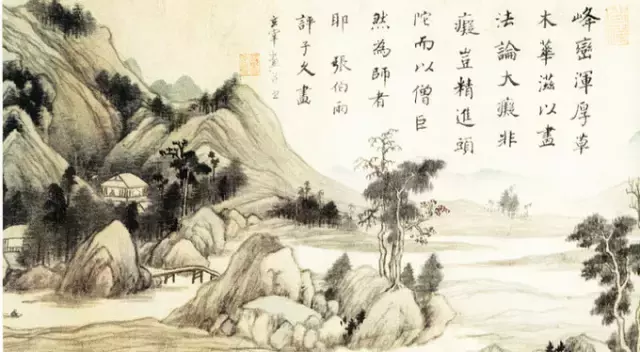 峰巒渾厚草
木華滋以畫
法論大癡非
癡豈精進頭
陀而以僧巨
然為師者
耶 張伯雨
評子久畫
玄宰畫